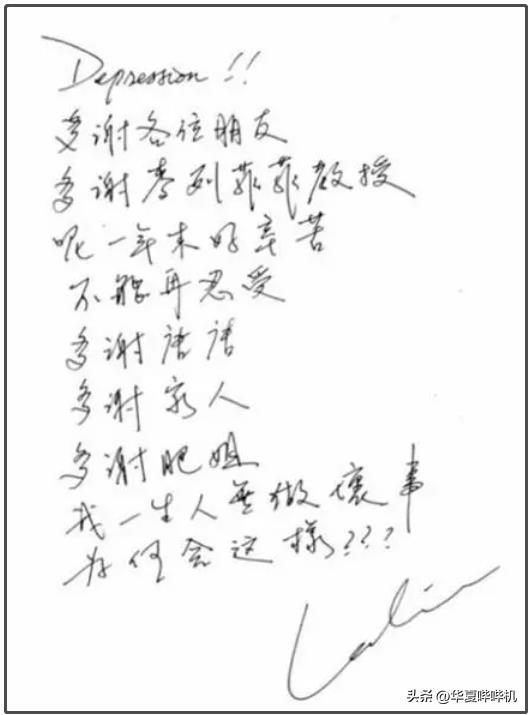 Depression!!
多谢各位朋友
多谢麦列菲菲教授
呢一年来好辛苦
不能再忍受
多谢唐唐
多谢家人
多谢肥姐
我一生人無做壞事
为何会这樣???
Leslie
头条 @华夏哔哔机